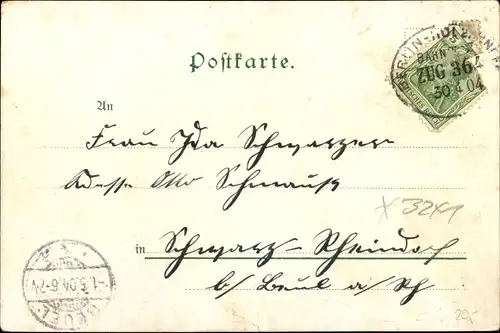 Postkarte.
BERLIN-
BAHN
ZUG 364
30 4 04
An
Frau Ida Schwarzer
Adesse Otto Schmausk
X 3241
in Schwarz-Rheindorf
b/ Beuel a/Rh
-1.5.04.6-7
BEUEL
20,-